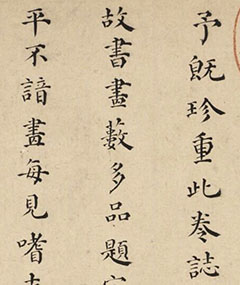 予既珍重此卷誌
故書畫藪多品題
平不諳畫每見嗜